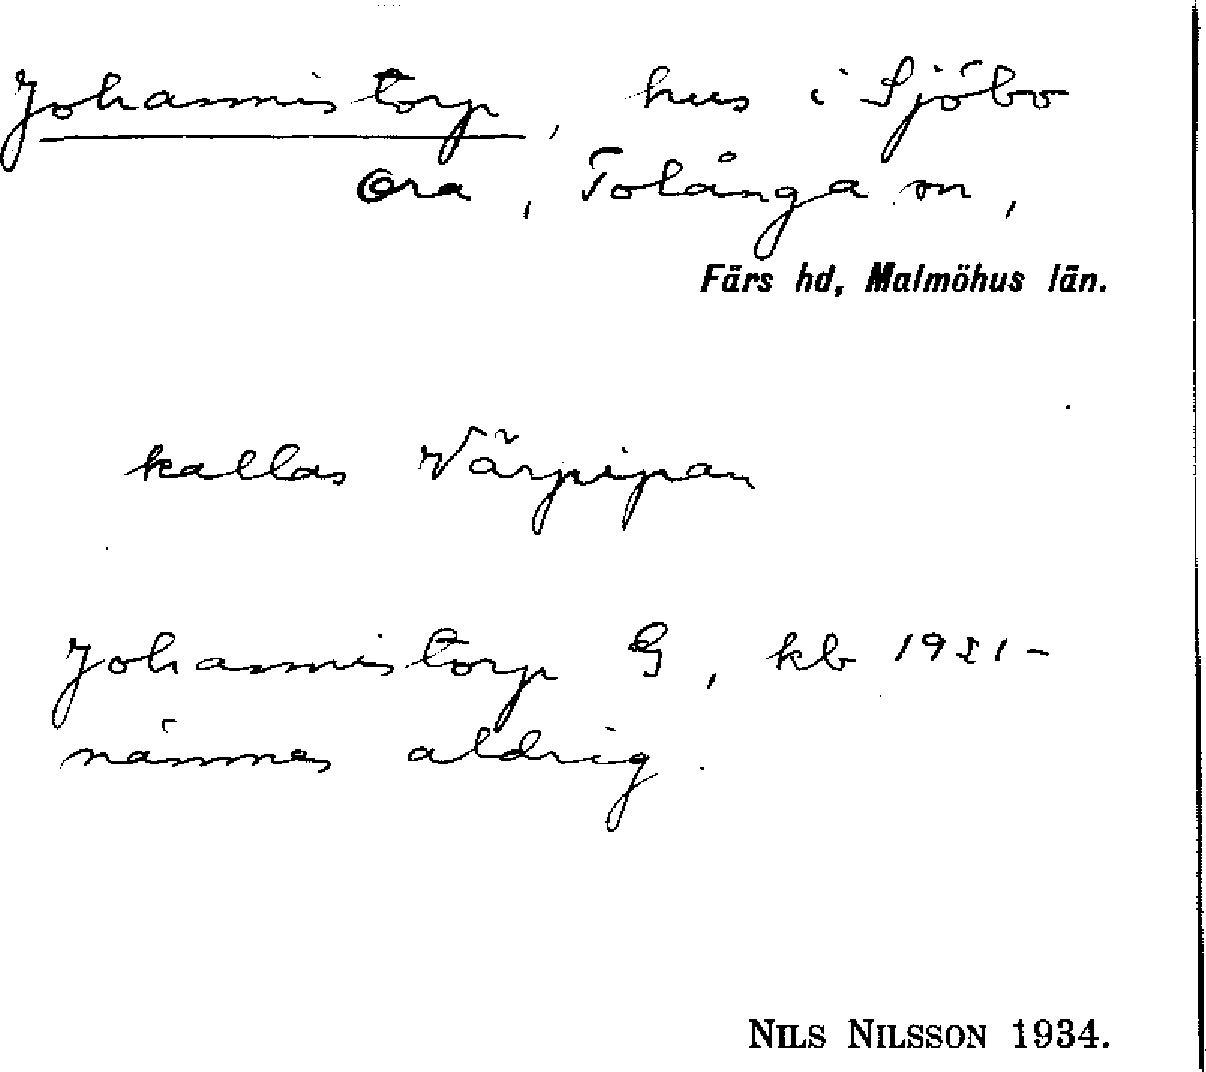 Johannistorp, hus i Sjöbo
Ora, Tolånga sn,
Färs hd, Malmöhus län.
kallas Värpipan
Johannistorp G, kb 1921–
nämnes aldrig.
NILS NILSSON 1934.